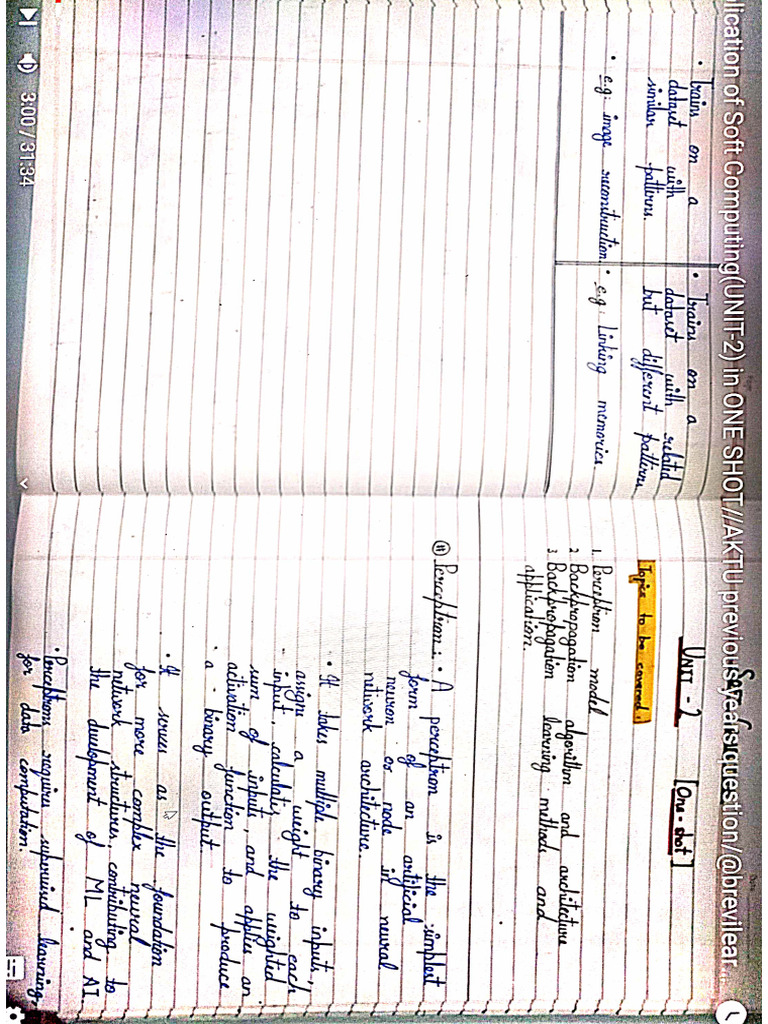 lication of Soft Computing(UNIT-2) in ONE SHOT//AKTU previous years question/@brevilear...
• Trains on a
dataset with
similar patterns.
• e.g: image reconstruction.
• Trains on a
dataset with related
but different patterns
• e.g: Linking memories
UNIT - 2
[One-shot]
Topics to be covered:
1. Perceptron model
2 Backpropagation algorithm and architecture
3 Backpropagation learning methods and
application.
# Perceptron:
• A perceptron is the simplest
form of an artificial
neuron or node in neural
network architecture.
• It takes multiple binary inputs,
assigns a weight to each
input, calculates the weighted
sum of inputs, and applies an
activation function to produce
a binary output.
• It serves as the foundation
for more complex neural
network structures, contributing to
the development of ML and AI
• Perceptrons requires supervised learning
for data computation.
3:00 / 31:34